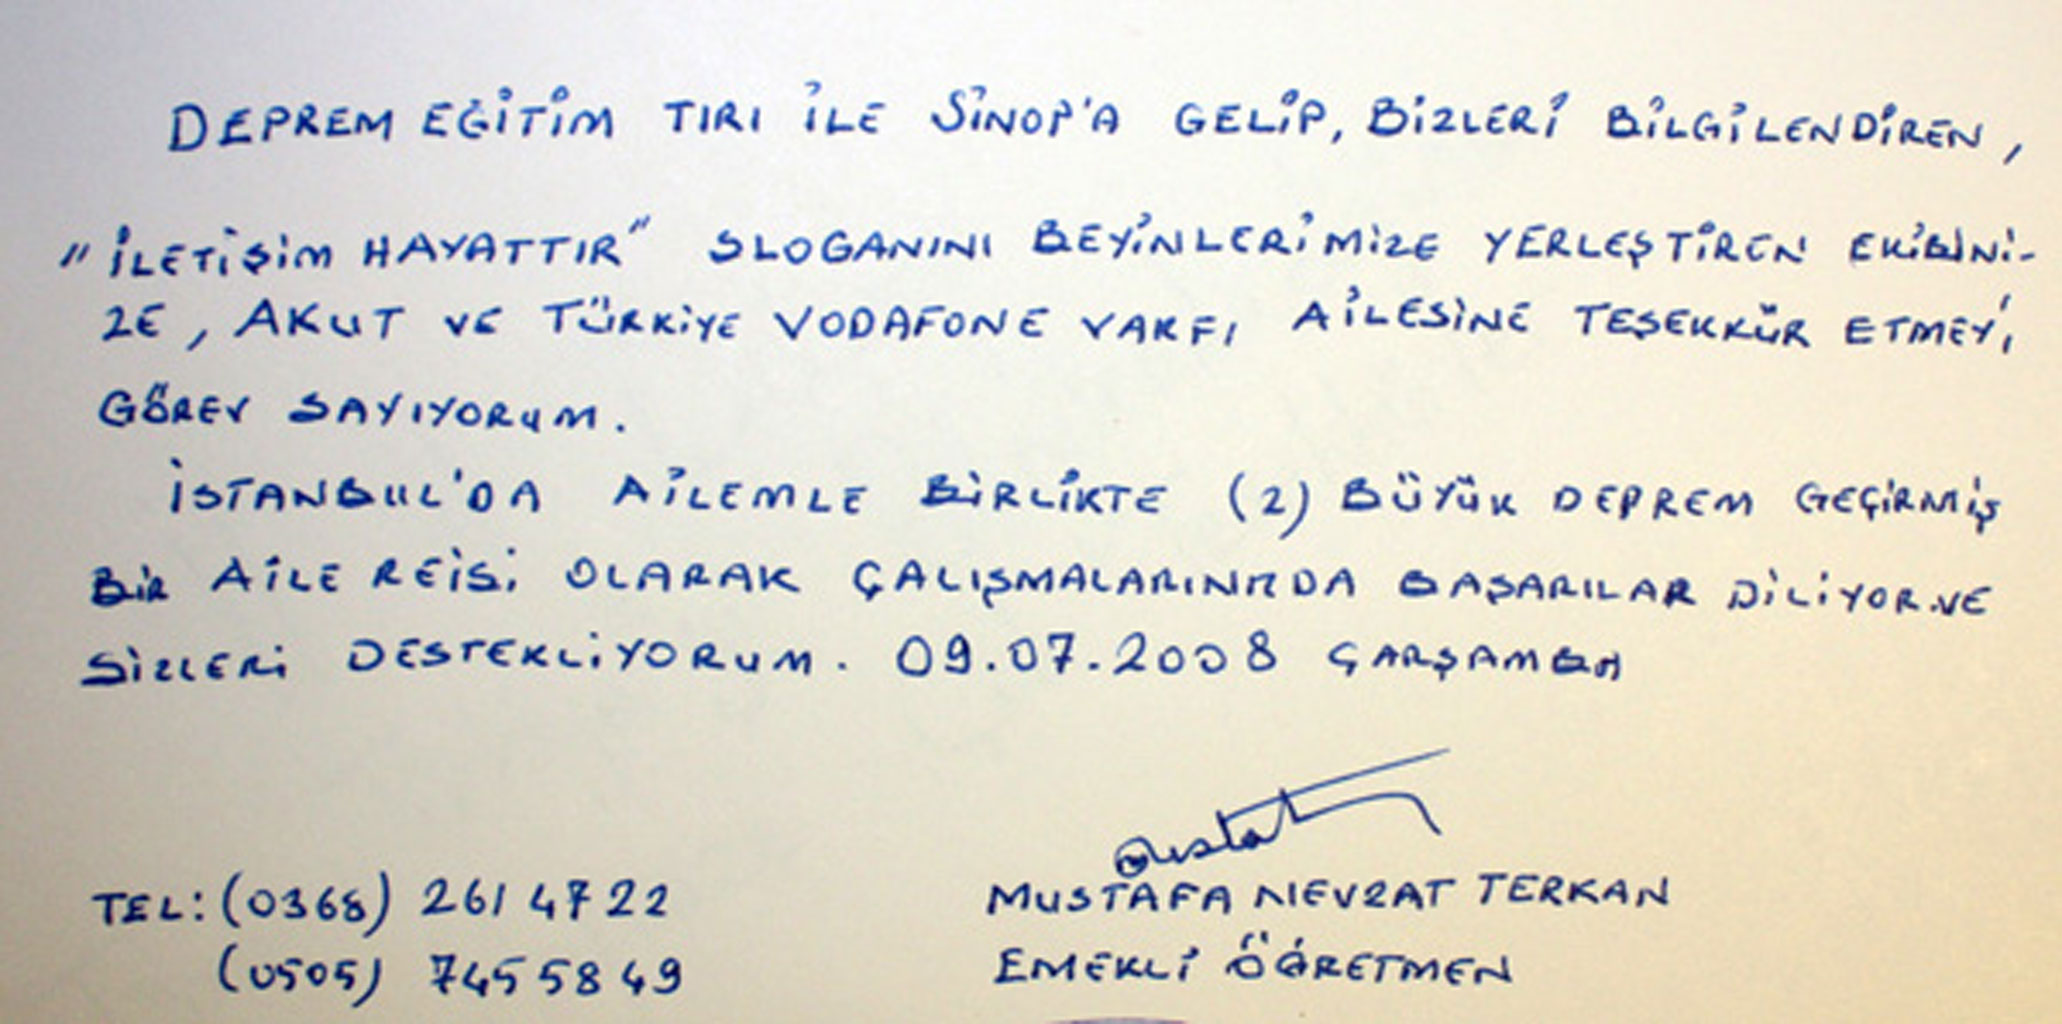 DEPREM EĞİTİM TIRI İLE SİNOP'A GELİP, BİZLERİ BİLGİLENDİREN,
"İLETİŞİM HAYATTIR" SLOGANINI BEYİNLERİMİZE YERLEŞTİREN EKİBİNİ-
ZE, AKUT VE TÜRKİYE VODAFONE VAKFI AİLESİNE TEŞEKKÜR ETMEYİ
GÖREV SAYIYORUM.
İSTANBUL'DA AİLEMLE BİRLİKTE (2) BÜYÜK DEPREM GEÇİRMİŞ
BİR AİLE REİSİ OLARAK ÇALIŞMALARINIZDA BAŞARILAR DİLİYOR VE
SİZLERİ DESTEKLİYORUM. 09.07.2008 ÇARŞAMBA
Mustafa
TEL: (0368) 261 47 22 MUSTAFA NEVZAT TERKAN
(0505) 745 58 49 EMEKLİ ÖĞRETMEN